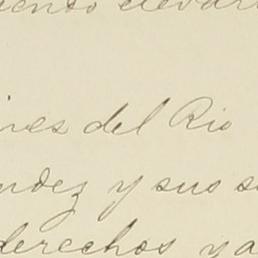 iento elevar
ires del Rio
ndez y sus s
derechos y a